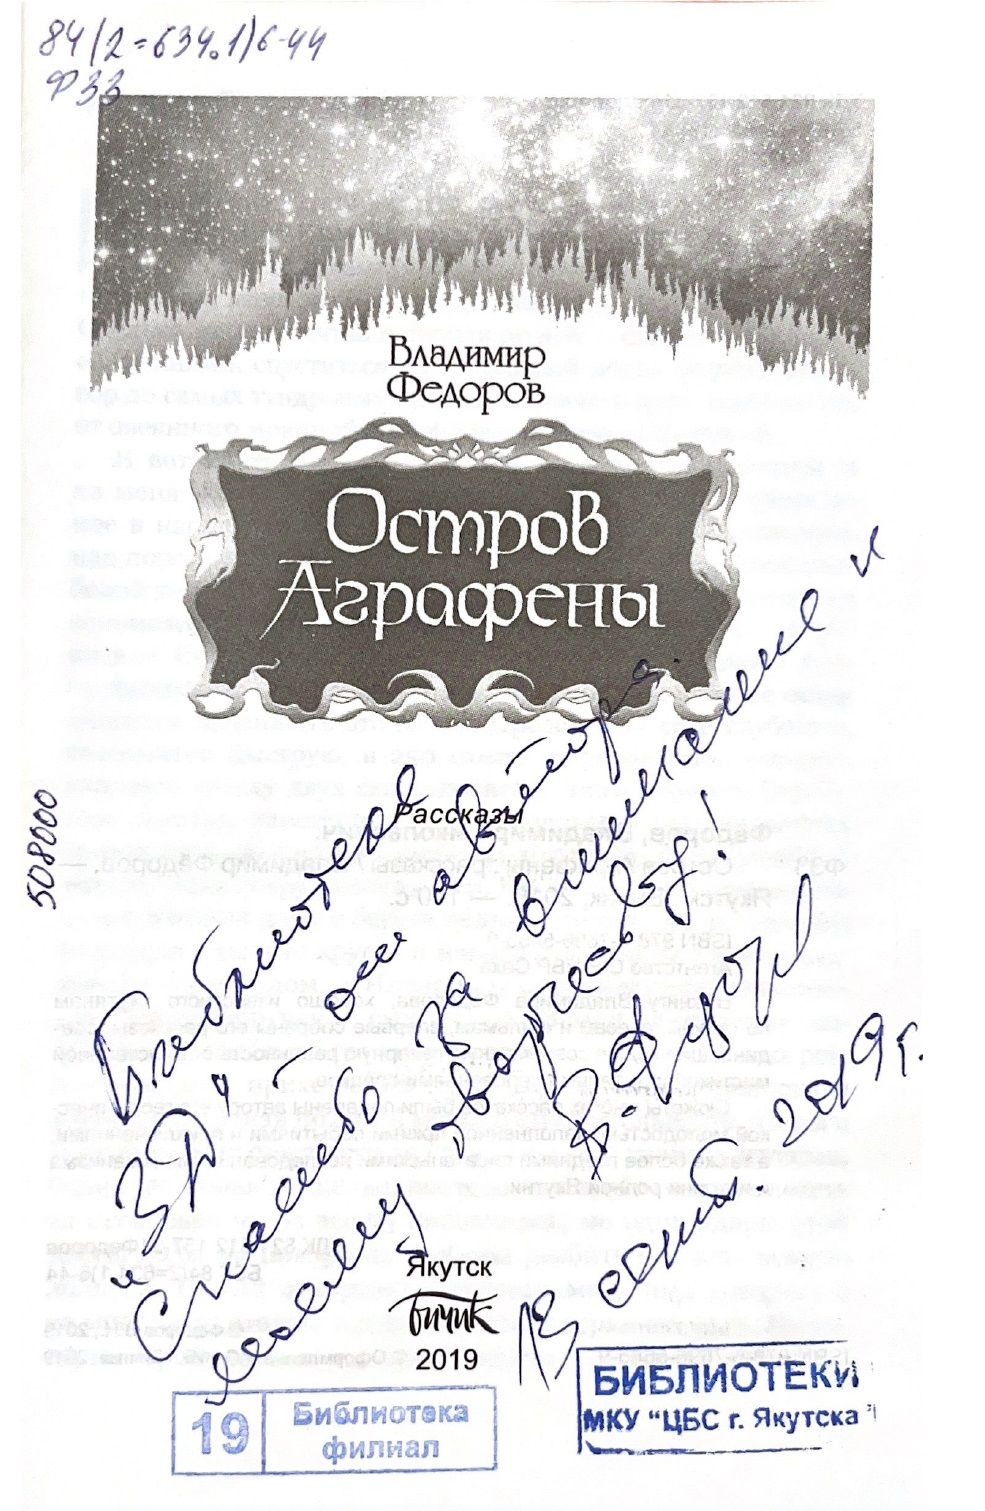 84(2=634.1)6-44
Ф33
Владимир
Федоров
Остров
Аграфены
Рассказы
508000
Библиотеке
"ЗД" от автора.
Спасибо за внимание и
моему творчеству!
В. Федоров
18 сент. 2019 г.
Якутск
Бичик
2019
19
Библиотека
филиал
БИБЛИОТЕКИ
МКУ "ЦБС г. Якутска"